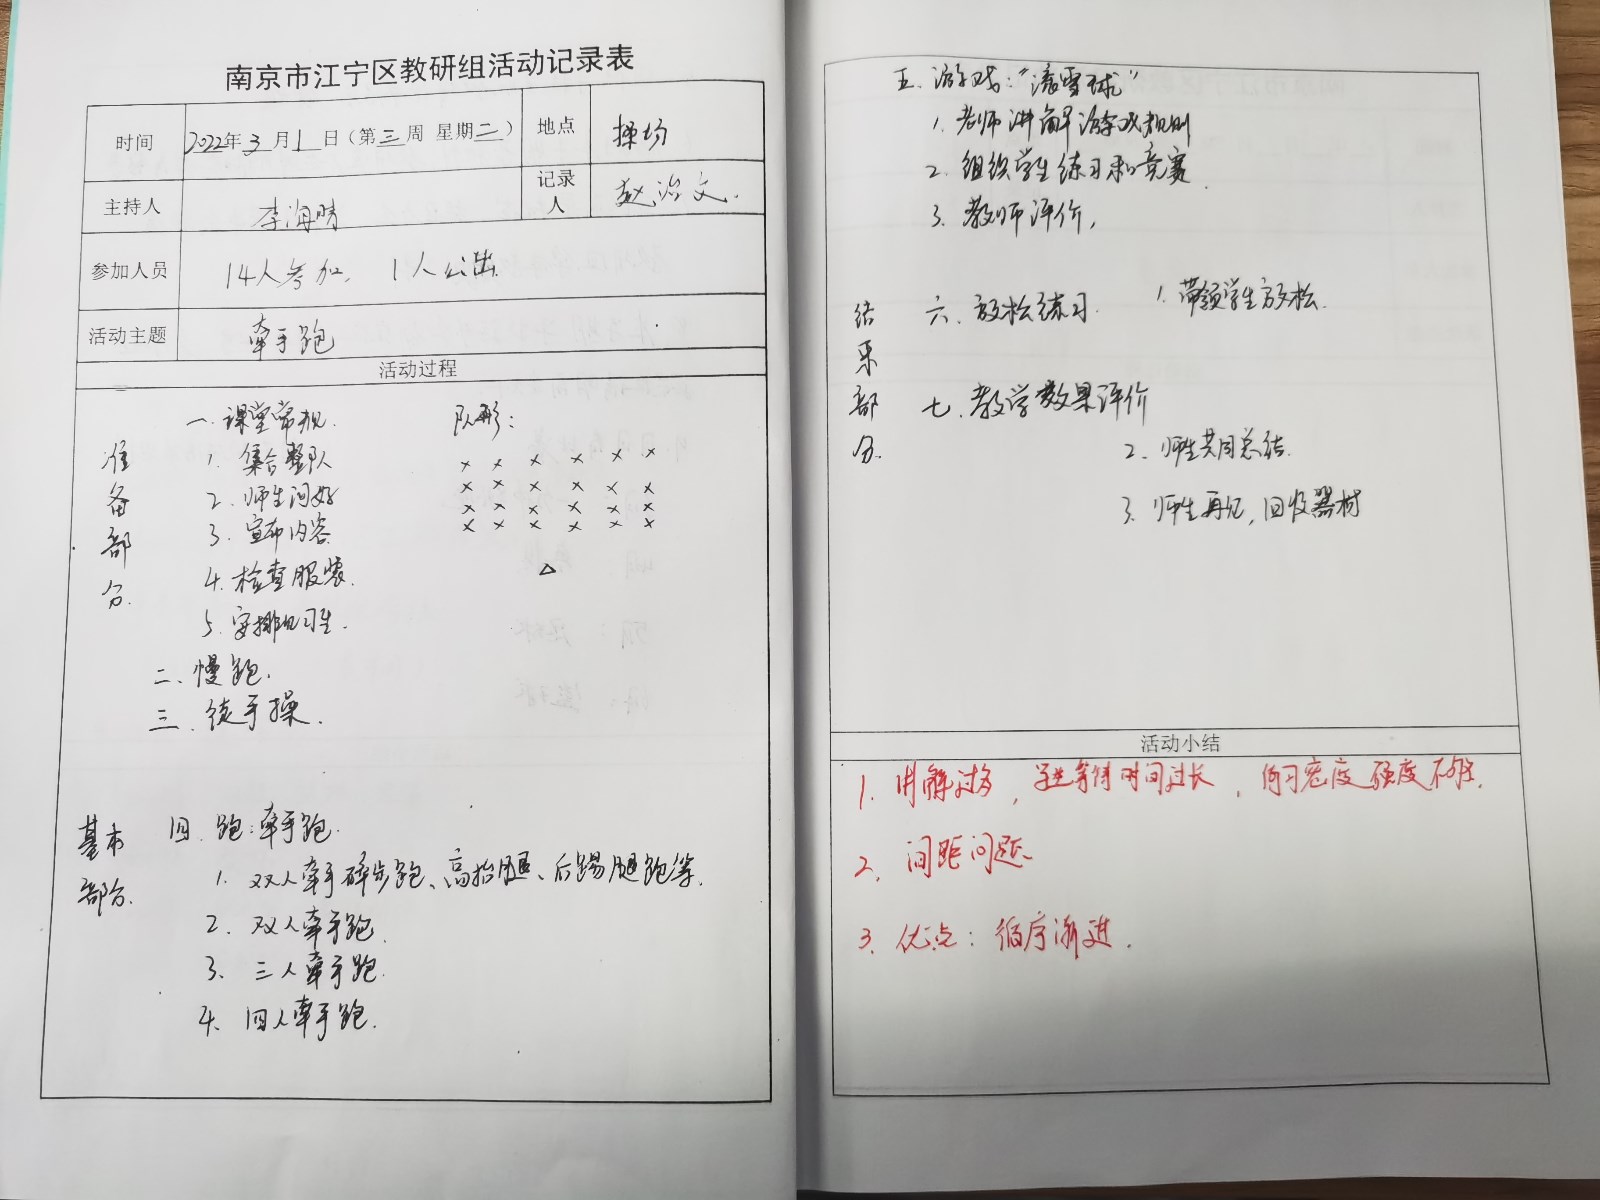 南京市江宁区教研组活动记录表
时间 2022年3月1日（第三周 星期二） 地点 操场
主持人 李海晴 记录人 赵治文.
参加人员 14人参加, 1人公出.
活动主题 牵手跑
活动过程
准备部分
一、课堂常规. 队形：
1. 集合整队 × × × × × ×
2. 师生问好 × × × × × ×
3. 宣布内容 × × × × × ×
× × × × × ×
4. 检查服装. △
5. 安排见习生.
二、慢跑.
三、徒手操.
基本部分.
四、跑：牵手跑.
1. 双人牵手碎步跑、高抬腿、后踢腿跑等.
2. 双人牵手跑.
3. 三人牵手跑.
4. 四人牵手跑.
五、游戏：“滚雪球”
1. 老师讲解游戏规则
2. 组织学生练习和竞赛.
3. 教师评价,
结束部分.
六、放松练习. 1. 带领学生放松.
七、教学效果评价
2. 师生共同总结.
3. 师生再见, 回收器材
活动小结
1. 讲解过多, 学生等待时间过长, 练习密度强度不够.
2. 间距问题.
3. 优点：循序渐进.